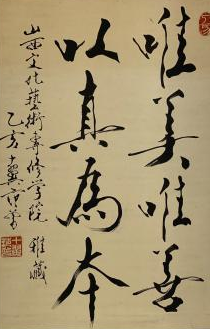 唯美唯善
以真為本
山西文化藝術專修學院 雅藏
乙亥